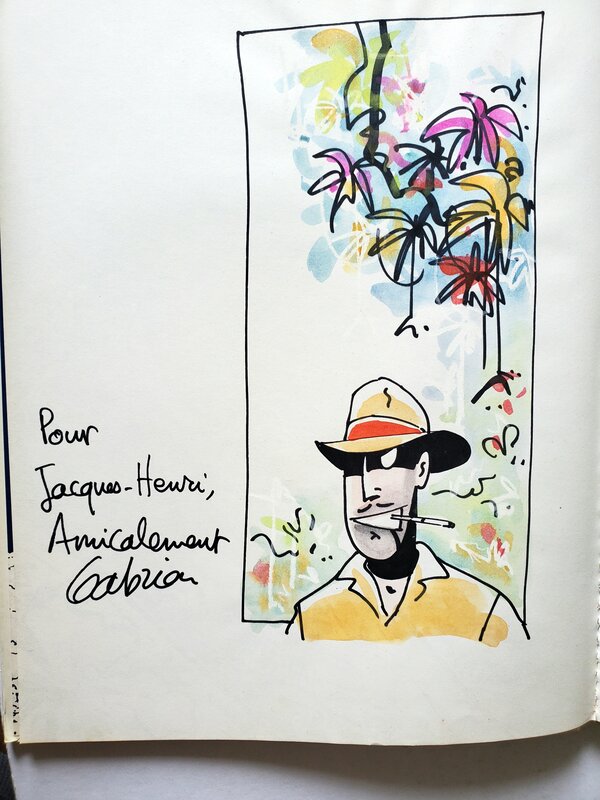 Pour
Jacques-Henri,
Amicalement
Gabrion